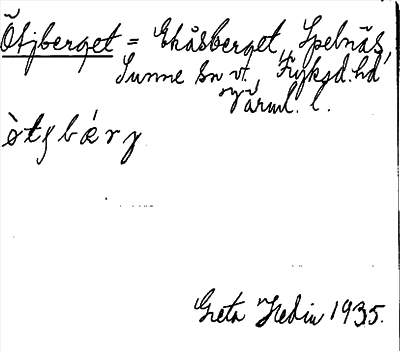 Õtjberget = Ekåsberget, Spelnäs,
Sunne sn vt., Fryksd. hd
Värml. l.
òtʃbǽry
Greta Hedin 1935.